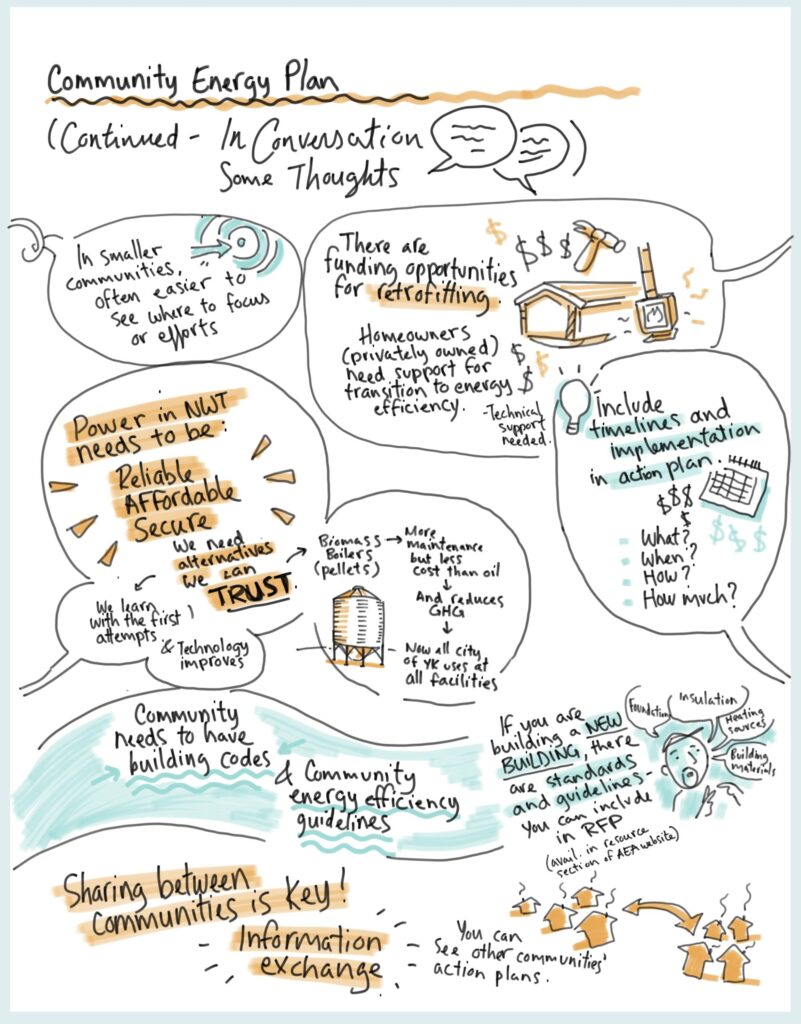 Community Energy Plan
(Continued - In Conversation
Some Thoughts
In smaller
communities,
often easier to
see where to focus
or efforts
There are
funding opportunities
for retrofitting.
Homeowners
(privately owned)
need support for
transition to energy
efficiency.
-Technical
support
needed.
$
$ $ $
$
$
$
$
Power in NWT
needs to be:
Reliable
Affordable
Secure
We need
alternatives
we can
TRUST.
We learn
with the first
attempts
& Technology
improves
Biomass
Boilers
(pellets)
More
maintenance
but less
cost than oil
And reduces
GHG
Now all city
of YK uses at
all facilities
Include
timelines and
implementation
in action plan.
$$$
$
$$$
What?
When?
How?
How much?
Community
needs to have
building codes
& Community
energy efficiency
guidelines
If you are
building a NEW
BUILDING, there
are standards
and guidelines-
You can include
in RFP
(avail. in resource
section of AEA website)
Foundation
Insulation
Heating
sources
Building
materials
Sharing between
Communities is Key!
Information
exchange
You can
see other communities'
action plans.